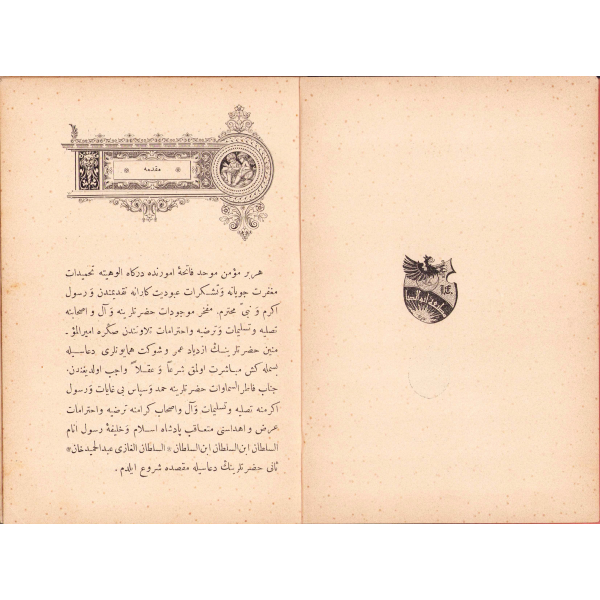 مقدمه
هربر مؤمن موحد فاتحهٔ امورنده درکاه الوهیته تحمیدات
مغفرت جویانه و تشکرات عبودیت کارانه تقدیمندن و رسول
اکرم و نبیّ محترم، مفخر موجودات حضرتلرینه و آل و اصحابنه
تصلیه و تسلیمات و ترضیه و احترامات تلاوتندن صکره امیرالمؤ-
منین حضرتلرینڭ ازدیاد عمر و شوکت همایونلری دعاسیله
بسمله کش مباشرت اولمق شرعاً و عقلاً واجب اولدیغندن.
جناب فاطرالسماوات حضرتلرینه حمد و سپاس بی غایات و رسول
اکرمنه تصلیه و تسلیمات و آل و اصحاب کرامنه ترضیه و احترامات
عرض و اهداسنی متعاقب پادشاه اسلام و خلیفهٔ رسول انام
السلطان ابن السلطان ابن السلطان * السلطان الغازی عبدالحمید خان *
ثانی حضرتلرینڭ دعاسیله مقصده شروع ایلدم.